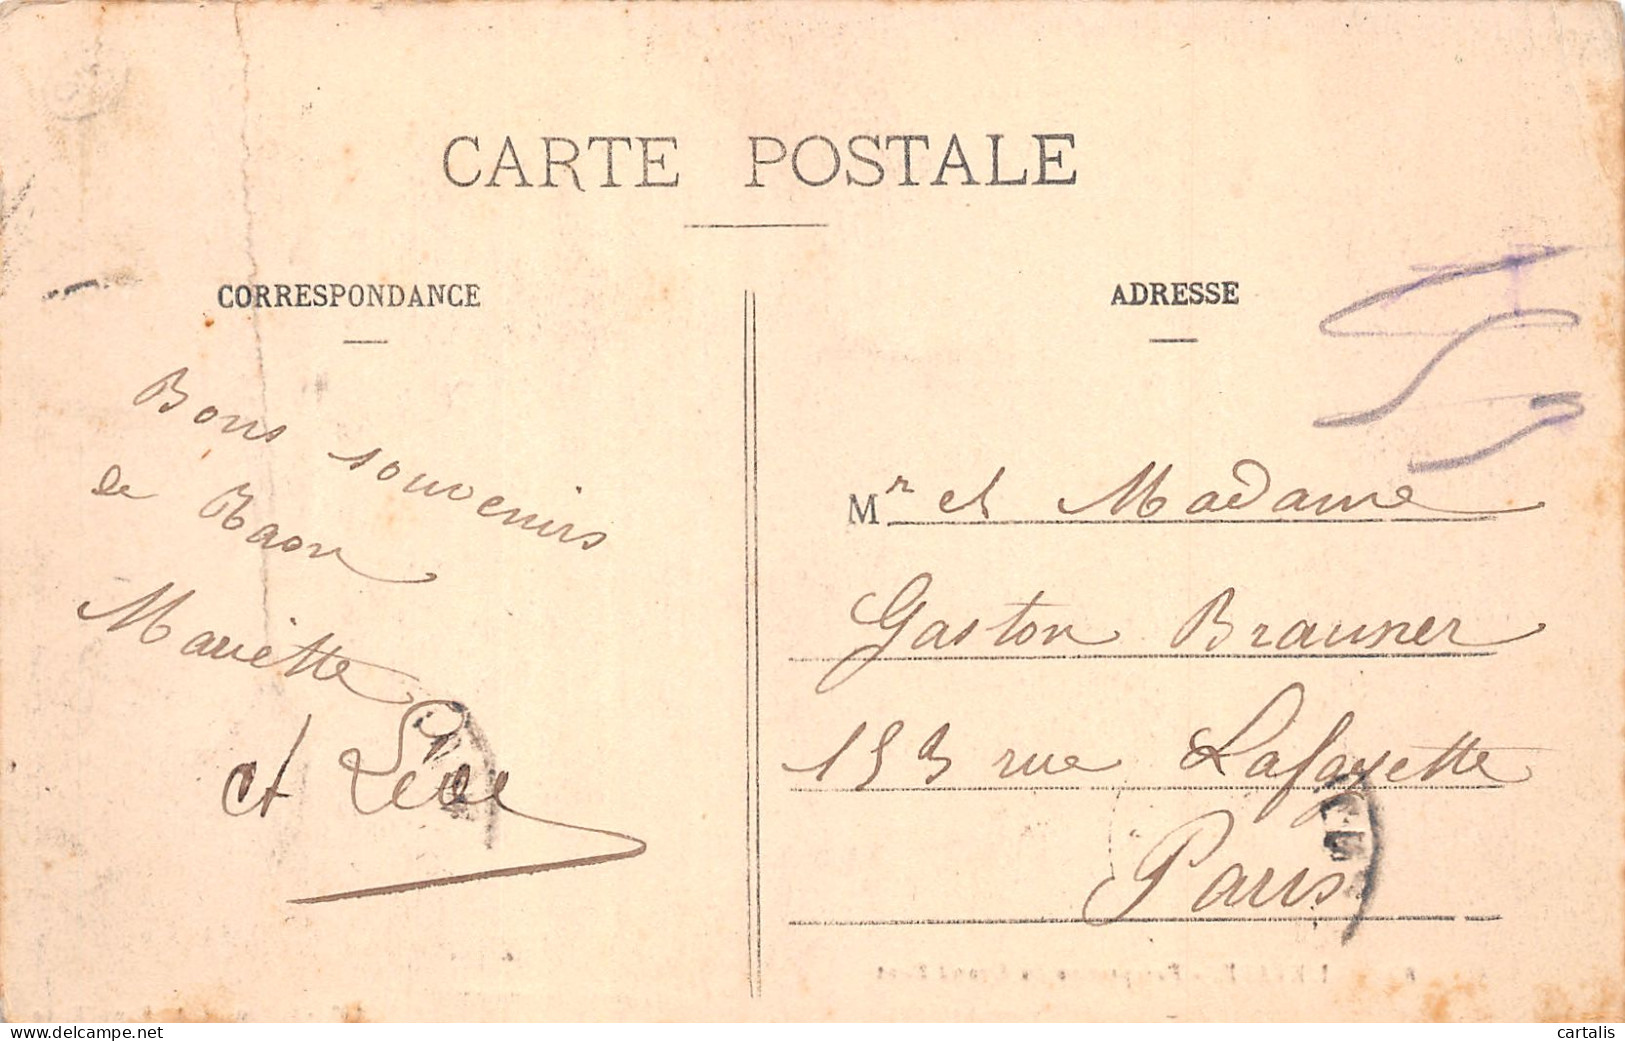 CARTE POSTALE
CORRESPONDANCE
Bons souvenirs
de Raon
Mariette
et Lève
ADRESSE
Mr et Madame
Gaston Brauner
153 rue Lafayette
Paris
delcampe.net
cartalis